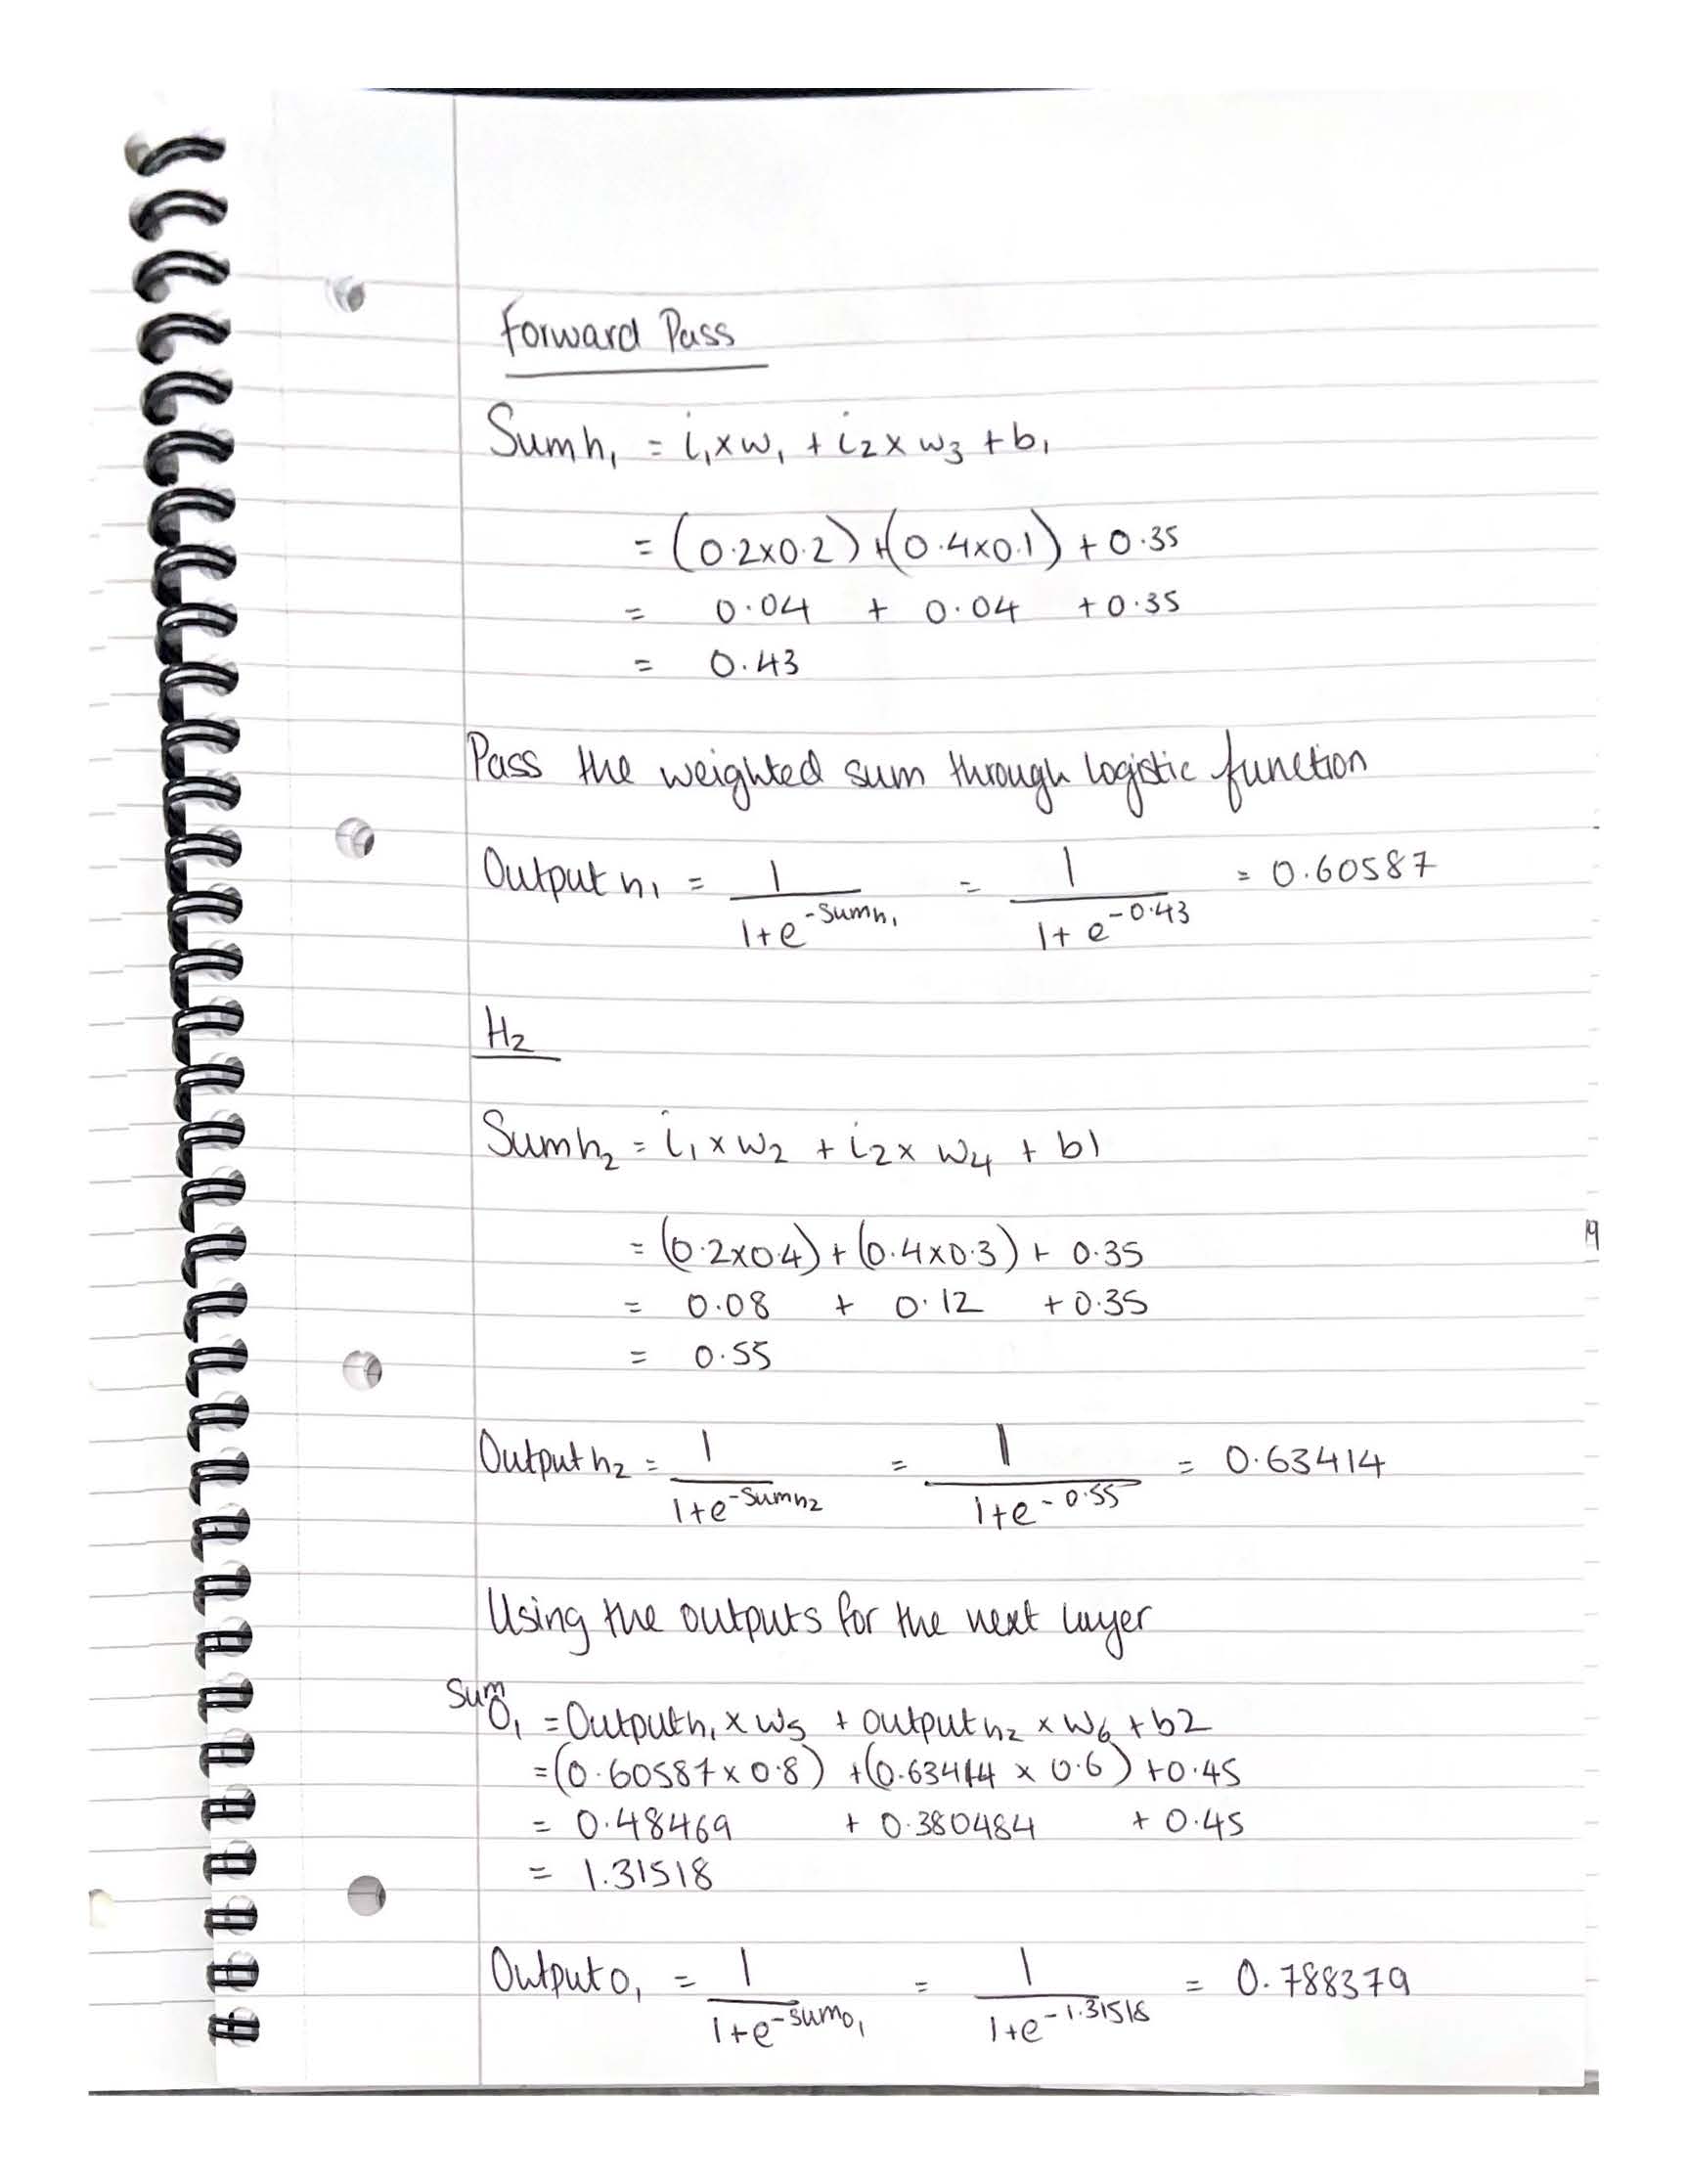 Forward Pass
Sumh₁ = i₁xw₁ + i₂x w₃ + b₁
= (0.2x0.2) + (0.4x0.1) + 0.35
= 0.04 + 0.04 + 0.35
= 0.43
Pass the weighted sum through logistic function
Output h₁ = 1/(1+e^-Sumh₁) = 1/(1+e^-0.43) = 0.60587
H₂
Sumh₂ = i₁ x w₂ + i₂x w₄ + b1
= (0.2x0.4) + (0.4x0.3) + 0.35
= 0.08 + 0.12 + 0.35
= 0.55
Output h₂ = 1/(1+e^-Sumh₂) = 1/(1+e^-0.55) = 0.63414
Using the outputs for the next layer
Sum O₁ = Outputh₁ x w₅ + output h₂ x w₆ + b2
= (0.60587 x 0.8) + (0.63414 x 0.6) + 0.45
= 0.48469 + 0.380484 + 0.45
= 1.31518
Output O₁ = 1/(1+e^-sumo₁) = 1/(1+e^-1.31518) = 0.788379